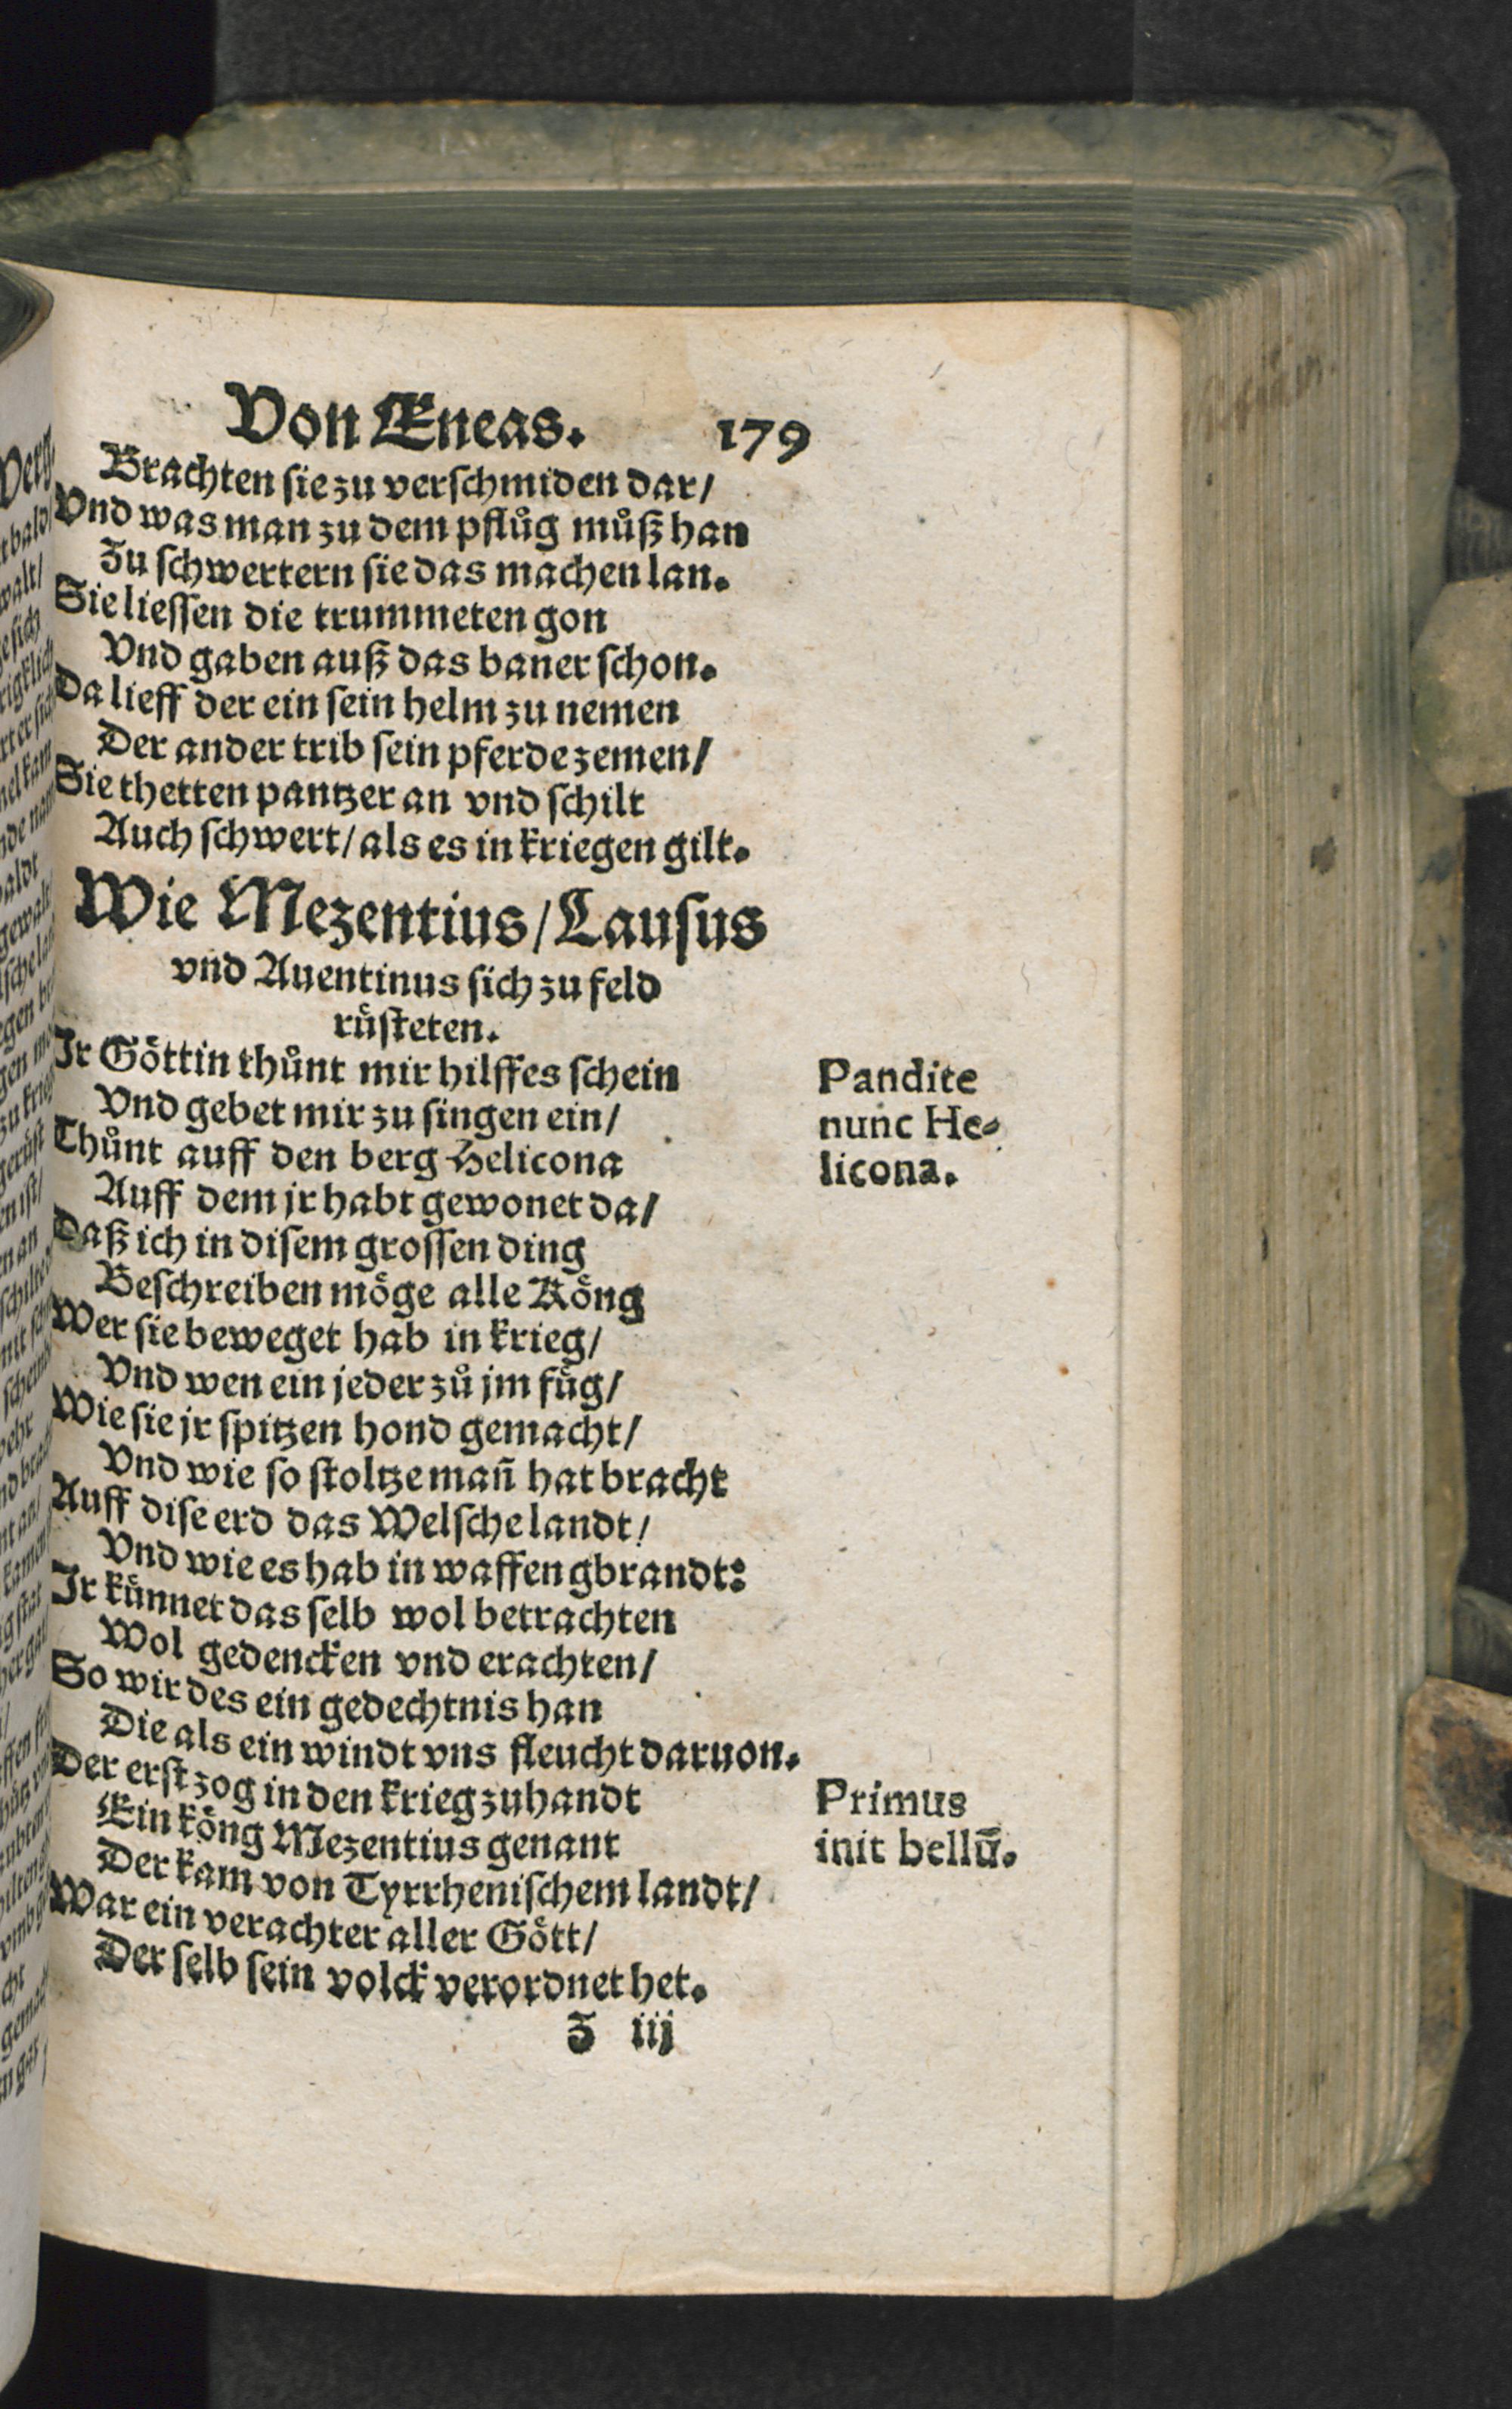 Von Æneas. 179
Brachten sie zu verschmiden dar/
Vnd was man zu dem pflůg můß han
Zu schwertern sie das machen lan.
Sie liessen die trummeten gon
Vnd gaben auß das baner schon.
Da lieff der ein sein helm zu nemen
Der ander trib sein pferde zemen/
Sie thetten pantzer an vnd schilt
Auch schwert/ als es in kriegen gilt.
Wie Mezentius/ Lausus
vnd Auentinus sich zu feld
rüsteten.
Ir Göttin thůnt mir hilffes schein
Vnd gebet mir zu singen ein/
Thůnt auff den berg Helicona
Auff dem jr habt gewonet da/
Daß ich in disem grossen ding
Beschreiben möge alle Köng
Wer sie beweget hab in krieg/
Vnd wen ein jeder zů jm fůg/
Wie sie jr spitzen hond gemacht/
Vnd wie so stoltze mañ hat bracht
Auff dise erd das Welsche landt/
Vnd wie es hab in waffen gbrandt:
Ir künnet das selb wol betrachten
Wol gedencken vnd erachten/
So wir des ein gedechtnis han
Die als ein windt vns fleucht daruon.
Der erst zog in den krieg zuhandt
Ein köng Mezentius genant
Der kam von Tyrrhenischem landt/
War ein verachter aller Gött/
Der selb sein volck verordnet het.
Z iij
Pandite
nunc He-
licona.
Primus
init bellū.